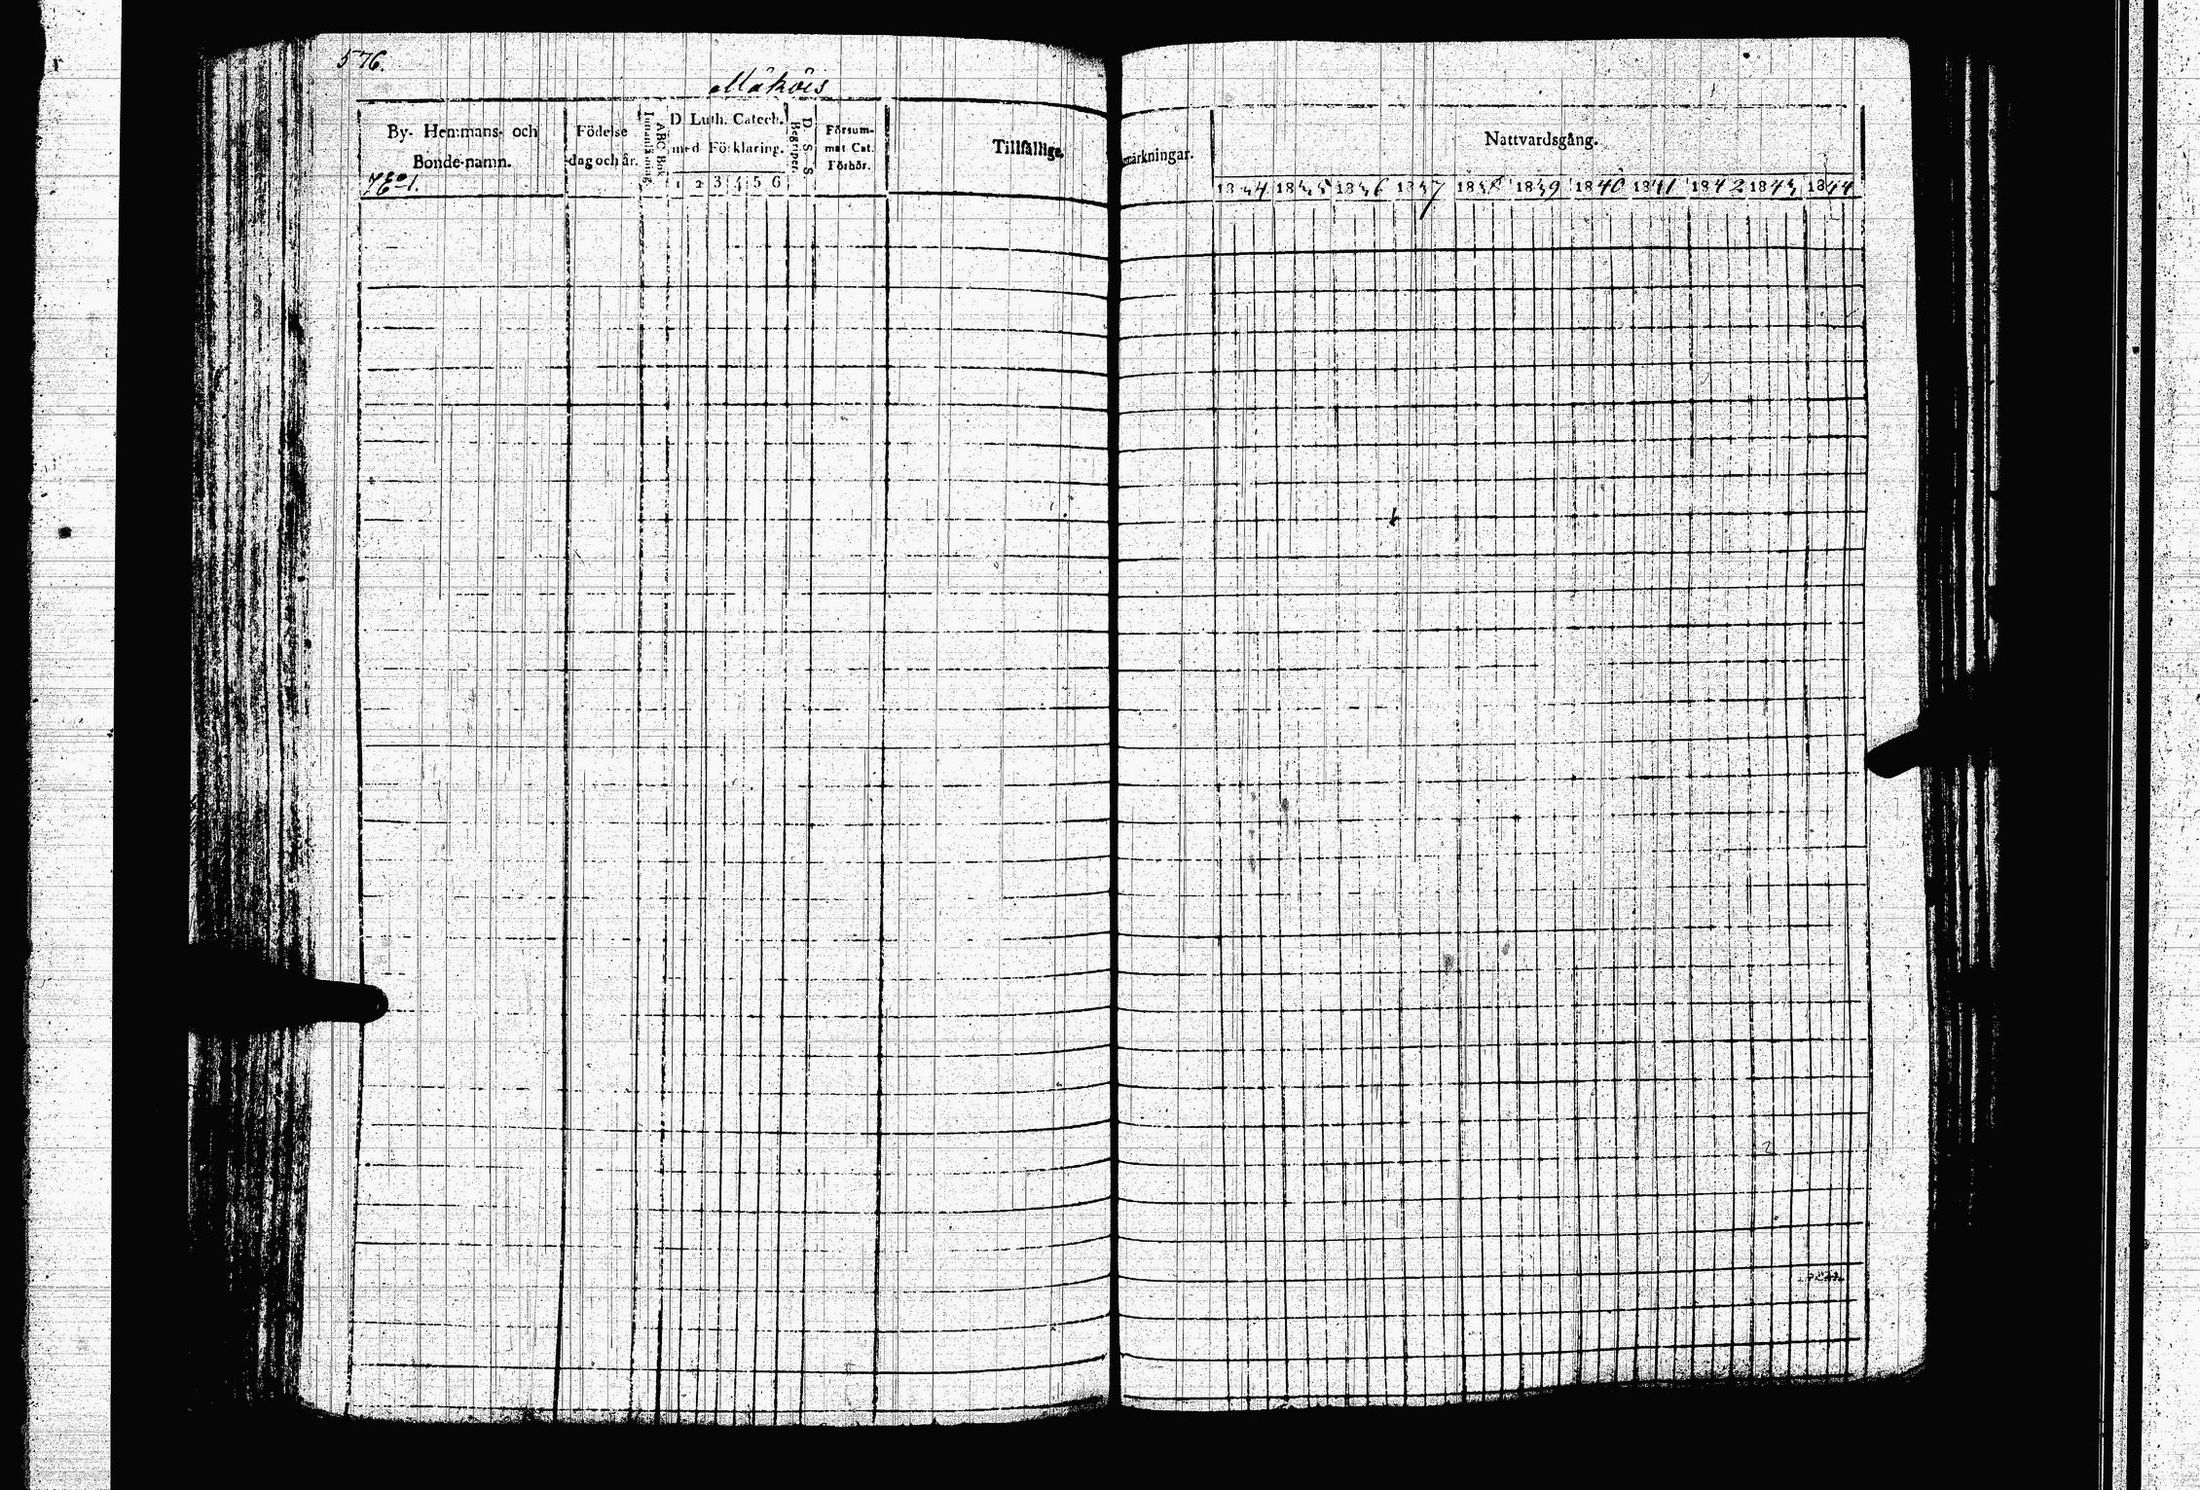 576.
Måkois
By- Hemmans- och
Bonde-namn.
Födelse
dag och år.
ABC Bok
Innanläsning.
D. Luth. Catech.
med Förklaring.
1 2 3 4 5 6
D. S. S.
Begriper.
Försum-
mat Cat.
Förhör.
Tillfällige
märkningar.
Nattvardsgång.
1834 1835 1836 1837 1838 1839 1840 1841 1842 1843 1844